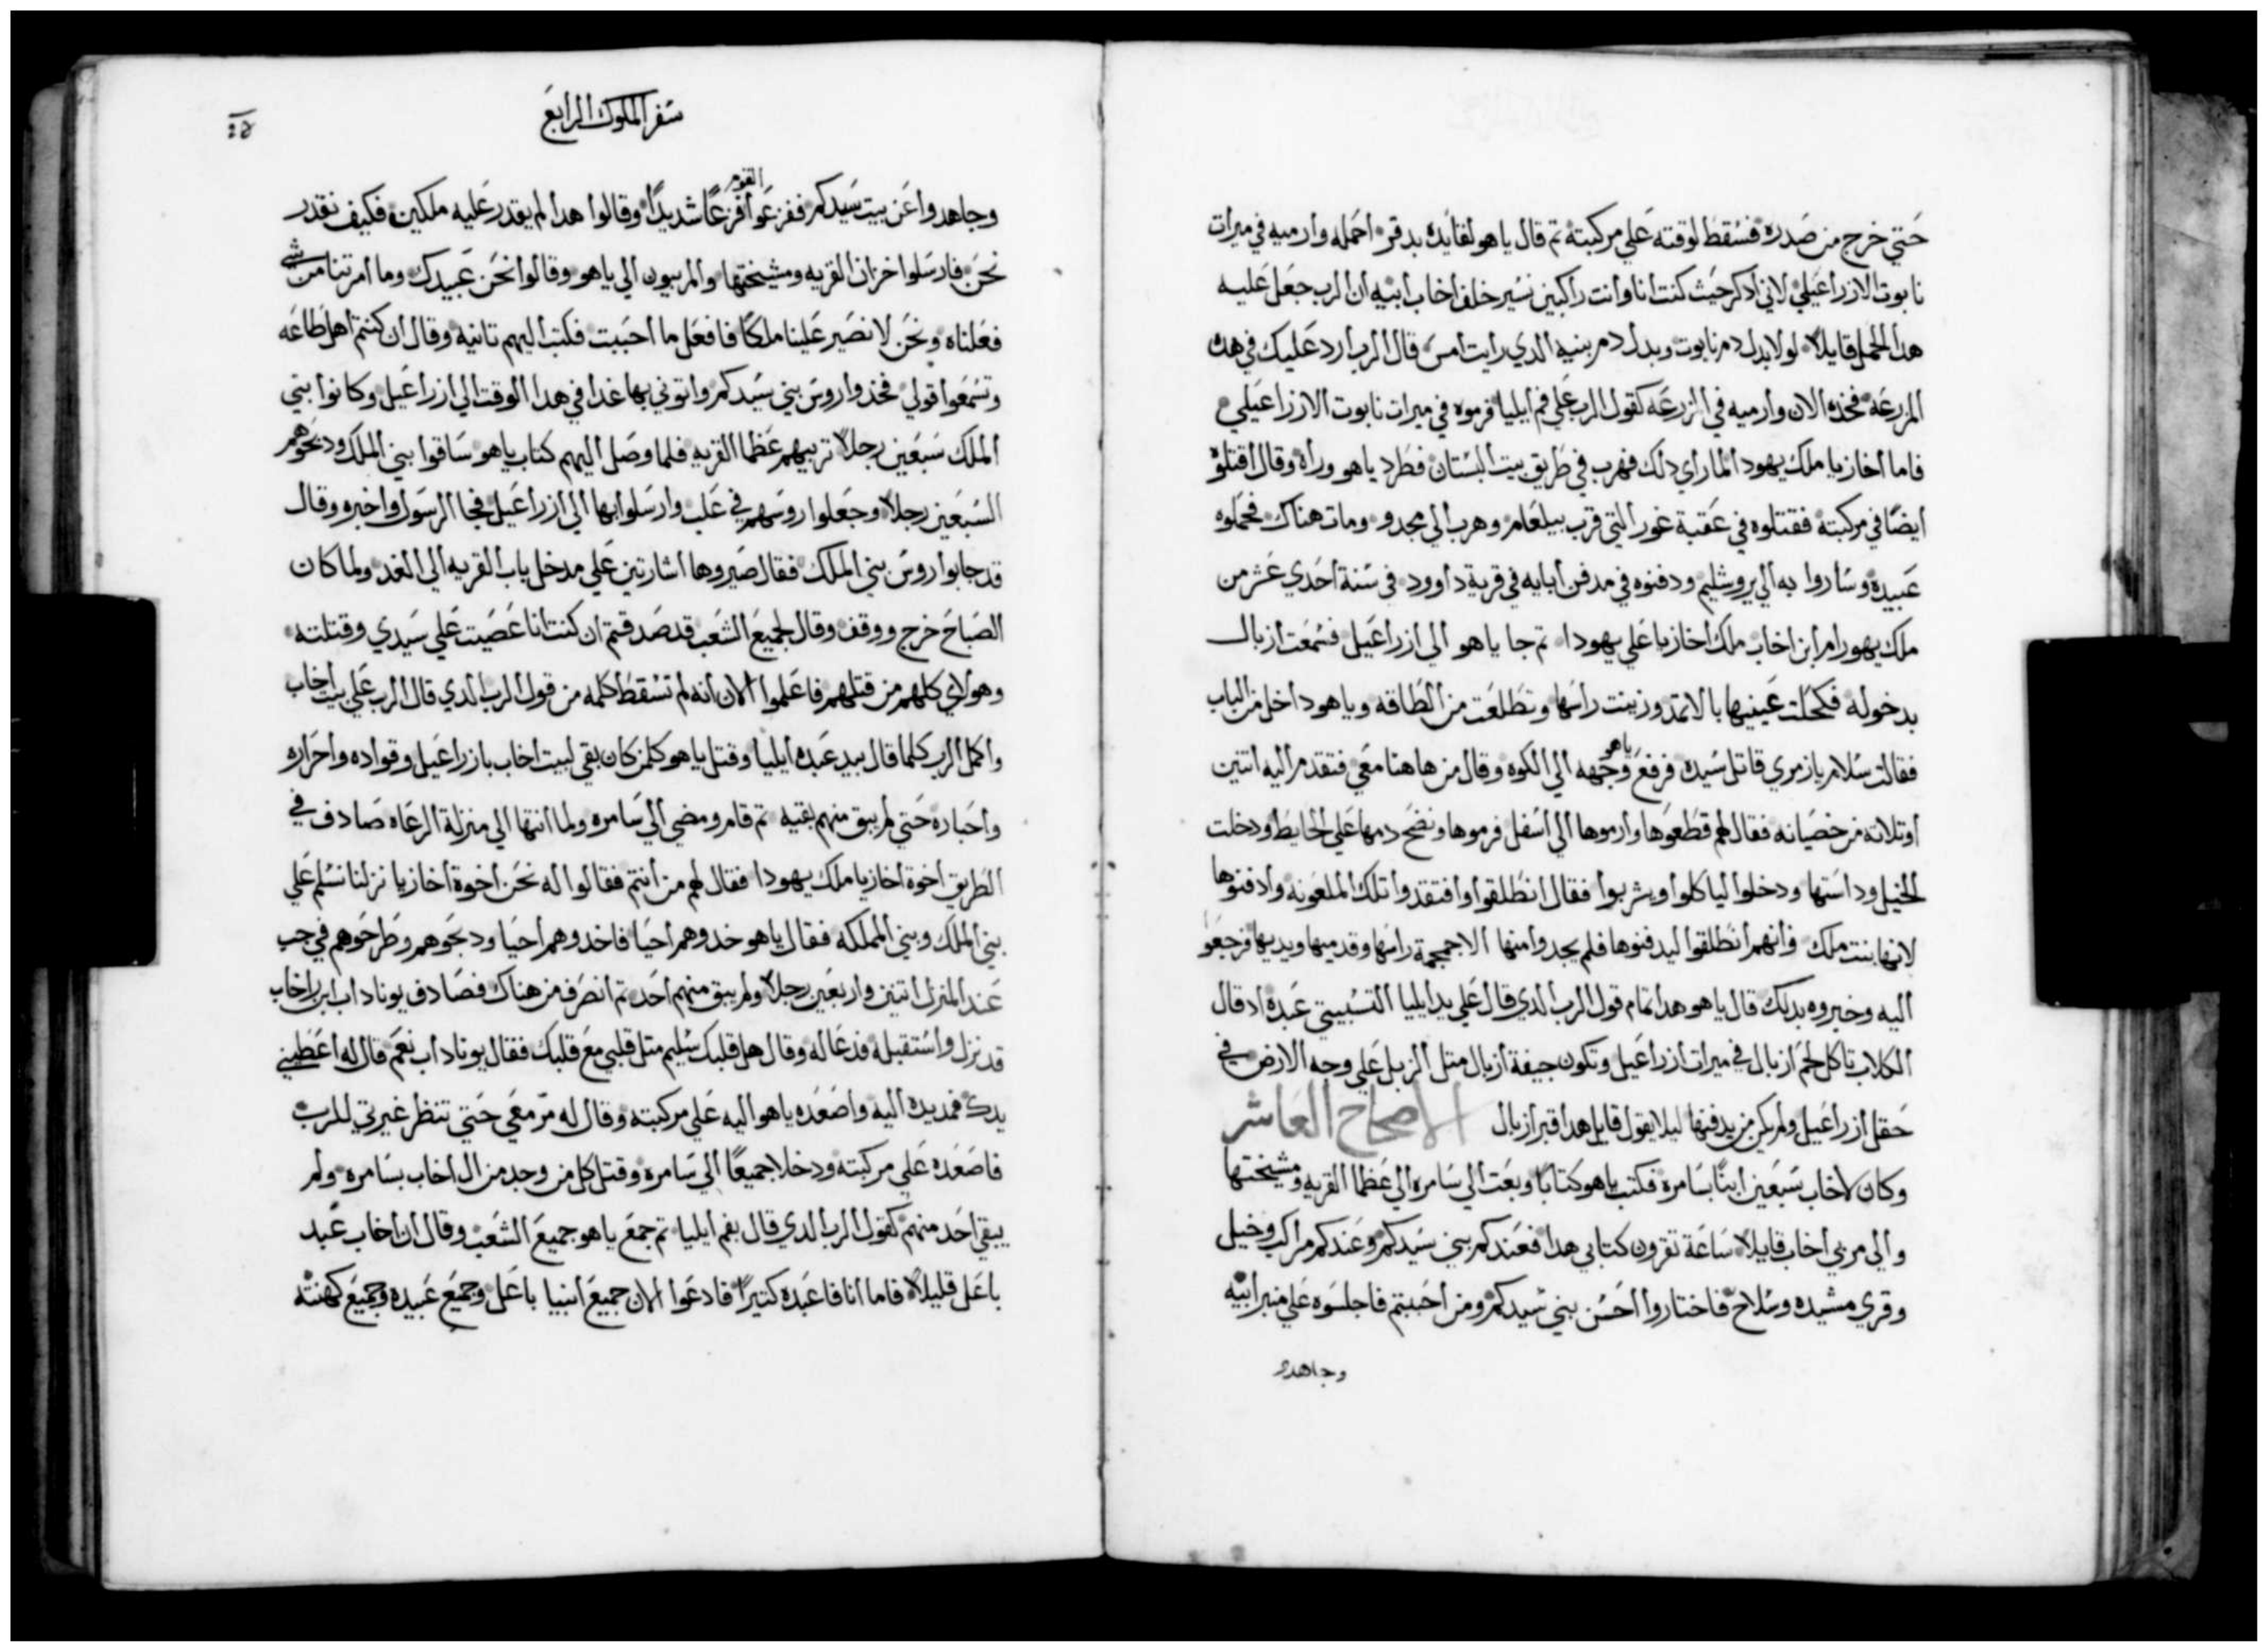 حتي خرج من صدره فسقط لوقته علي مركبته تم قال ياهو لقايده بدقر احمله وارميه في ميرات
نابوت الازراعيلي لاني ادكر حيث كنت انا وانت راكبين نسير خلف اخاب ابيه ان الرب جعل عليه
هدا الحمل قايلا لولا بدل دم نابوت وبدل دم بنيه الدي رايت امس قال الرب ارد عليك في هده
المزرعه فخده الان وارميه في المزرعه كقول الرب علي فم ايليا فرموه في ميرات نابوت الازراعيلي
فاما اخازيا ملك يهودا لما راي دلك فهرب في طريق بيت البستان فطرد ياهو وراه وقال اقتلوه
ايضا في مركبته فقتلوه في عقبة غور التي قرب بيلعام وهرب الي مجدو ومات هناك فحملوه
عبيده وساروا به الي يروشليم ودفنوه في مدفن ابايه في قرية داوود في سنة احدي عشر من
ملك يهورام ابن اخاب ملك اخازيا علي يهودا تم جا ياهو الي ازراعيل فسمعت ازبال
بدخوله فكحلت عينيها بالاتمد وزينت راسها وتطلعت من الطاقه وياهو داخل من الباب
فقالت سلام يازمري قاتل سيده فرفع ياهو وجهه الي الكوه وقال من هاهنا معي فتقدم اليه اتنين
اوتلاته من خصيانه فقال لهم قطعوها وارموها الي اسفل فرموها ونضح دمها علي الحايط ودخلت
الخيل وداستها ودخلوا لياكلوا ويشربوا فقال انطلقوا وافتقدوا تلك الملعونه وادفنوها
لانها بنت ملك وانهم انطلقوا ليدفنوها فلم يجدوا منها الا جمجمة راسها وقدميها ويديها فرجعوا
اليه وخبروه بدلك قال ياهو هدا تمام قول الرب الدي قال علي يد ايليا التسبيتي عبده اد قال
الكلاب تاكل لحم ازبال في ميرات ازراعيل وتكون جيفة ازبال متل الزبل علي وجه الارض في
حقل ازراعيل ولم يكن من يدفنها ليلا يقول قايل هدا قبر ازبال الاصحاح العاشر
وكان لاخاب سبعين ابنا بسامره فكتب ياهو كتابا وبعت الي سامره الي عظما القريه ومشيختها
والي مربي اخاب قايلا ساعة تقرون كتابي هدا فعندكم بني سيدكم وعندكم مراكب وخيل
وقري مشيده وسلاح فاختاروا احسن بني سيدكم ومن احببتم فاجلسوه علي منبر ابيه
وجاهدو
سفر الملوك الرابع
وجاهدوا عن بيت سيدكم ففزعوا القوم فزعا شديدا وقالوا هدا لم يقدر عليه ملكين فكيف نقدر
نحن فارسلوا خزان القريه ومشيختها والمربيون الي ياهو وقالوا نحن عبيدك وما امرتنا من شي
فعلناه ونحن لا نصير علينا ملكا فافعل ما احببت فكتب اليهم تانيه وقال ان كنتم اهل طاعه
وتسمعوا قولي فخدوا روس بني سيدكم واتوني بها غدا في هدا الوقت الي ازراعيل وكانوا بني
الملك سبعين رجلا تربيهم عظما القريه فلما وصل اليهم كتاب ياهو ساقوا بني الملك ودبحوهم
السبعين رجلا وجعلوا روسهم في علب وارسلوا بها الي ازراعيل فجا الرسول واخبره وقال
قد جابوا روس بني الملك فقال صيروها اشارتين علي مدخل باب القريه الي الغد ولما كان
الصباح خرج ووقف وقال لجميع الشعب قد صدقتم ان كنت انا عصيت علي سيدي وقتلته
وهولاي كلهم من قتلهم فاعلموا الان انه لم تسقط كلمه من قول الرب الدي قال الرب علي بيت اخاب
واكمل الرب كلما قال بيد عبده ايليا وقتل ياهو كلمن كان بقي لبيت اخاب بازراعيل وقواده واحراره
واحباره حتي لم يبق منهم بقيه تم قام ومضي الي سامره ولما انتها الي منزلة الرعاه صادف في
الطريق اخوة اخازيا ملك يهودا فقال لهم من انتم فقالوا له نحن اخوة اخازيا نزلنا نسلم علي
بني الملك وبني المملكه فقال ياهو خدوهم احيا فاخدوهم احيا ودبحوهم وطرحوهم في جب
عند المنزل اتنين واربعين رجلا ولم يبق منهم احد تم انصرف من هناك فصادف يوناداب ابن راخاب
قد نزل واستقبله فدعا له وقال هل قلبك سليم متل قلبي مع قلبك فقال يوناداب نعم قال له اعطيني
يدك فمد يده اليه واصعده ياهو اليه علي مركبته وقال له مر معي حتي تنظر غيرتي للرب
فاصعده علي مركبته ودخلا جميعا الي سامره وقتل كل من وجد من ال اخاب بسامره ولم
يبقي احد منهم كقول الرب الدي قال بفم ايليا تم جمع ياهو جميع الشعب وقال ان اخاب عبد
باعل قليلا فاما انا فاعبده كتيرا فادعوا الان جميع انبيا باعل وجميع عبيده وجميع كهنته